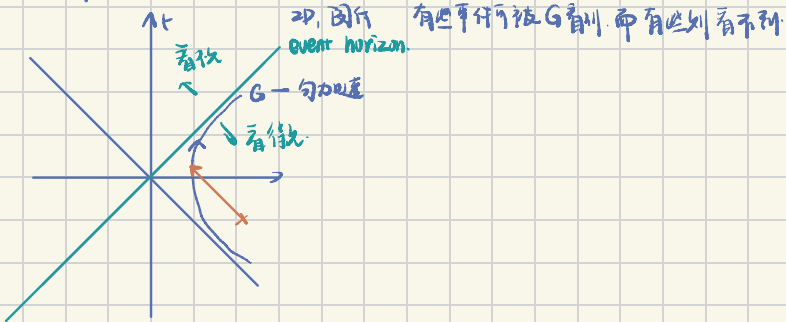 t
2D, 因代
有些事件可被G看到.而有些则看不到.
event horizon.
看
G — 匀加速
看得见.